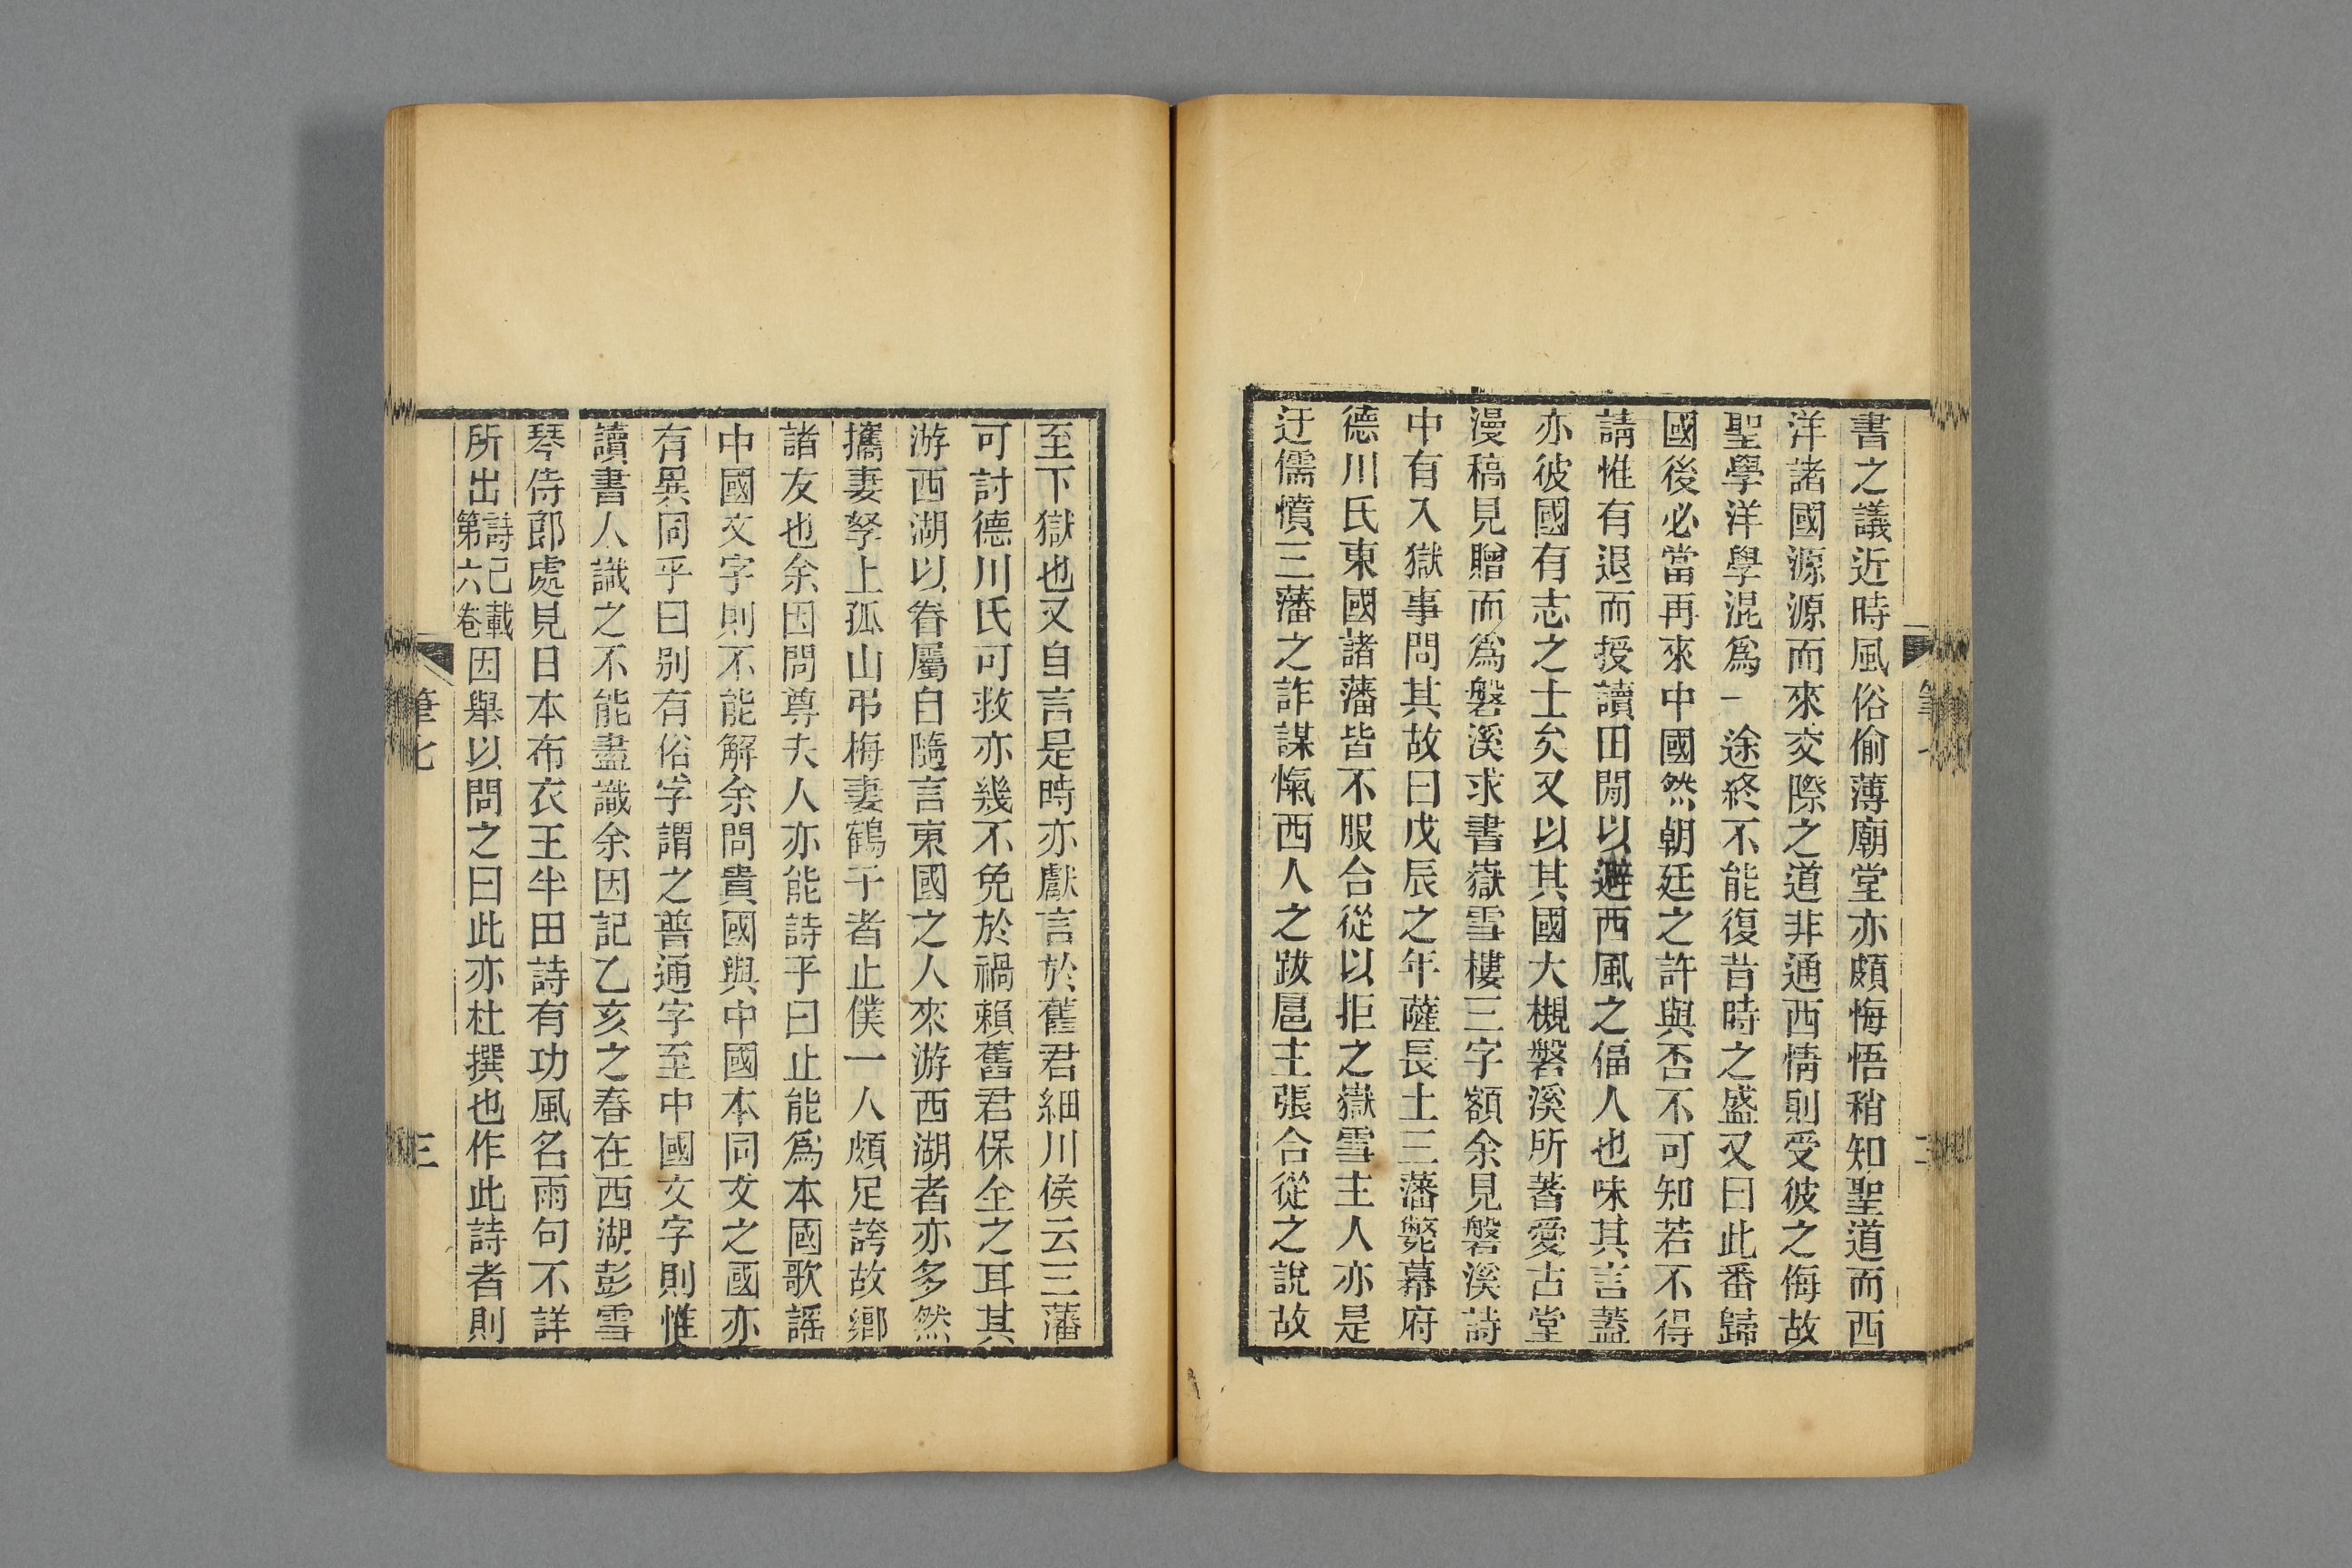 書之議近時風俗偷薄廟堂亦頗悔悟稍知聖道而西
洋諸國源源而來交際之道非通西情則受彼之侮故
聖學洋學混爲一途終不能復昔時之盛又曰此番歸
國後必當再來中國然朝廷之許與否不可知若不得
請惟有退而授讀田閒以避西風之偪人也味其言蓋
亦彼國有志之士矣又以其國大槻磐溪所著愛古堂
漫稿見贈而爲磐溪求書嶽雪樓三字額余見磐溪詩
中有入獄事問其故曰戊辰之年薩長土三藩斃幕府
德川氏東國諸藩皆不服合從以拒之嶽雪主人亦是
迂儒憤三藩之詐謀愾西人之跋扈主張合從之說故
至下獄也又自言是時亦獻言於舊君細川侯云三藩
可討德川氏可救亦幾不免於禍賴舊君保全之耳其
游西湖以眷屬自隨言東國之人來游西湖者亦多然
攜妻孥上孤山弔梅妻鶴子者止僕一人頗足誇故鄉
諸友也余因問尊夫人亦能詩乎曰止能爲本國歌謠
中國文字則不能解余問貴國與中國本同文之國亦
有異同乎曰别有俗字謂之普通字至中國文字則惟
讀書人識之不能盡識余因記乙亥之春在西湖彭雪
琴侍郎處見日本布衣王半田詩有功風名雨句不詳
所出詩已載第六卷因舉以問之曰此亦杜撰也作此詩者則
筆七
三